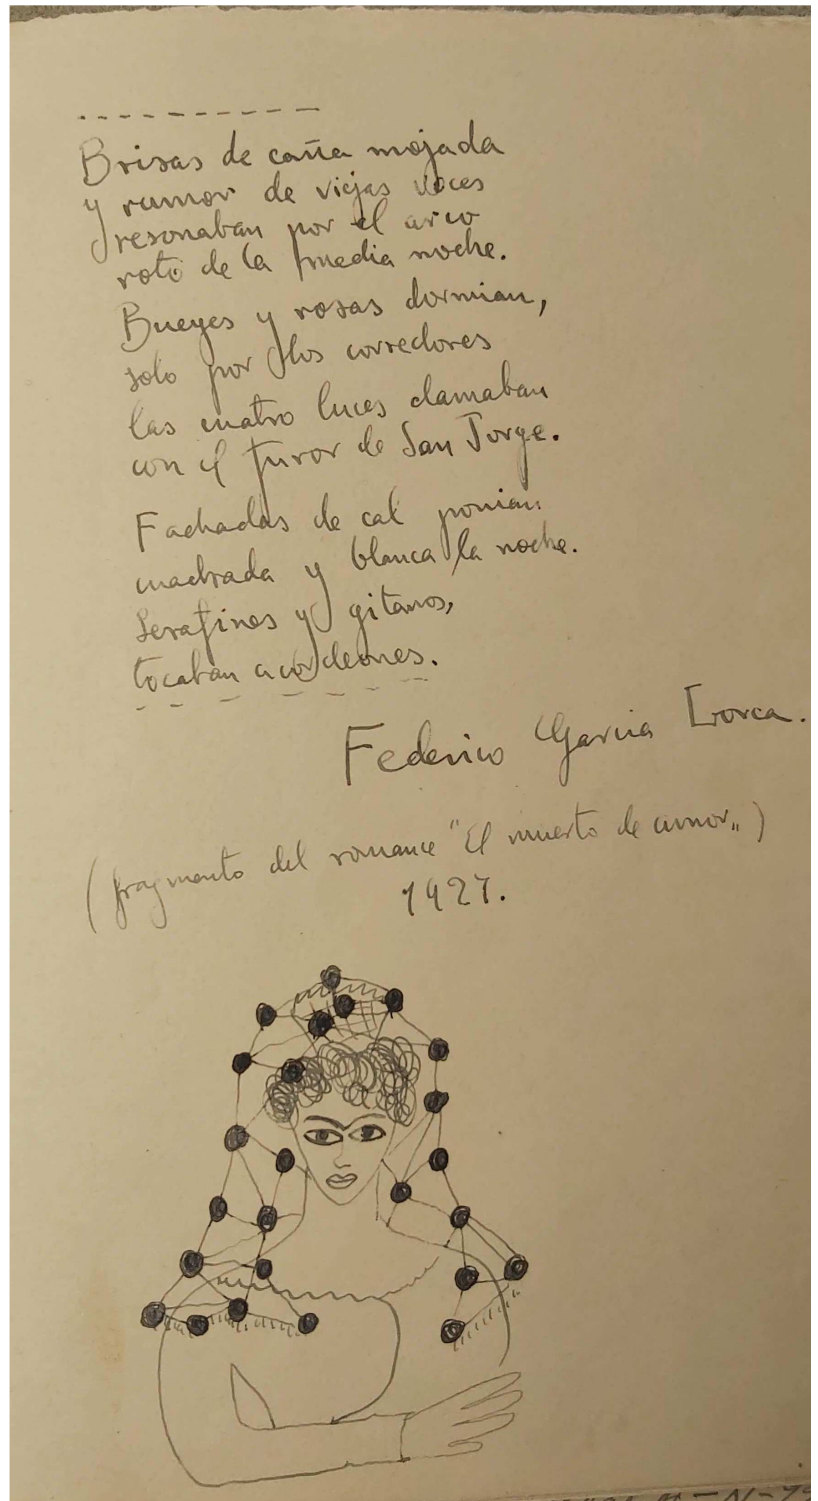 Brisas de caña mojada
y rumor de viejas voces
resonaban por el arco
roto de la media noche.
Bueyes y rosas dormian,
solo por los corredores
las cuatro luces clamaban
con el furor de San Jorge.
Fachadas de cal ponian
cuadrada y blanca la noche.
Serafines y gitanos,
tocaban acordeones.
Federico García Lorca.
(fragmento del romance "El muerto de amor„)
1927.